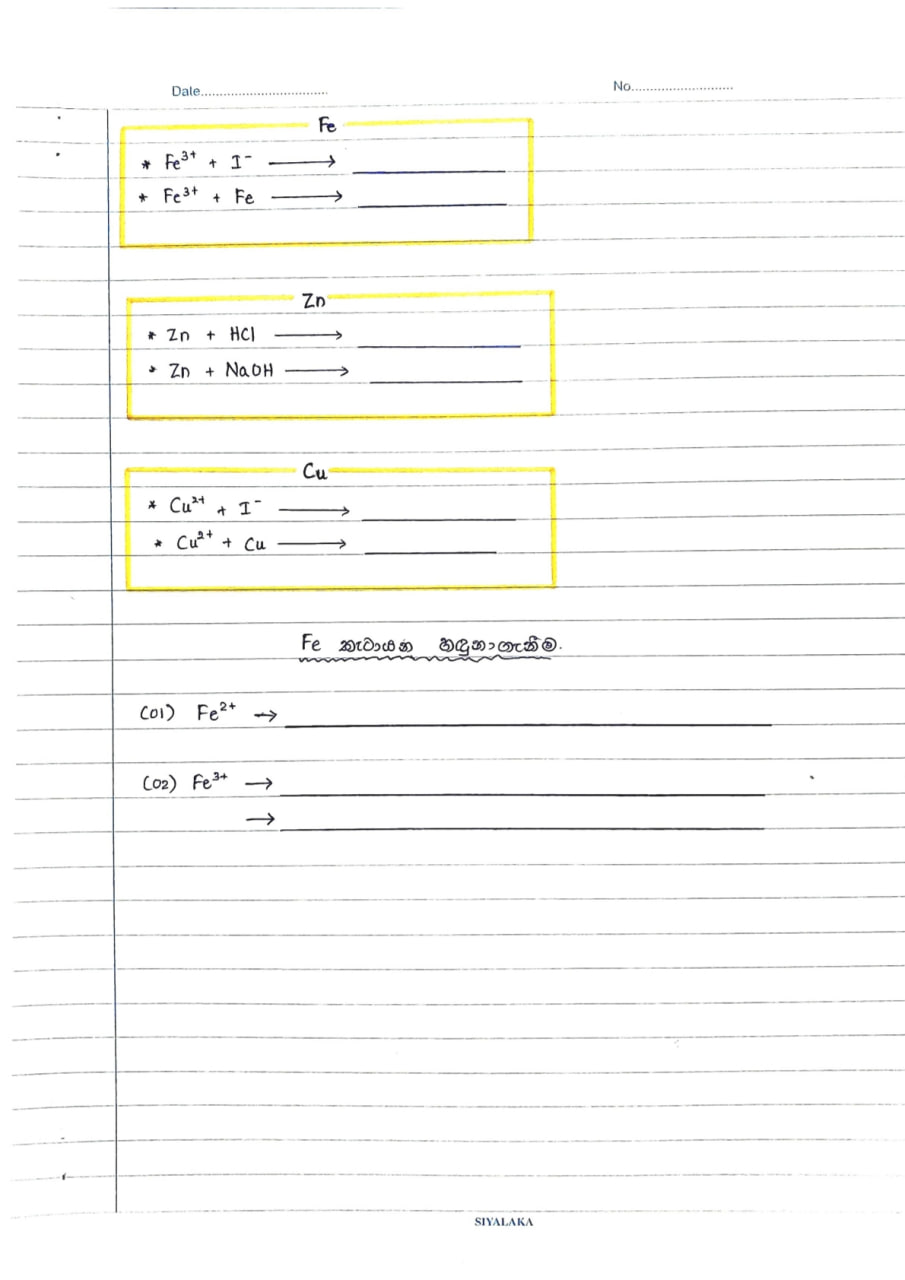 Date................................
No...........................
Fe
* Fe³⁺ + I⁻ ⟶ ____________
* Fe³⁺ + Fe ⟶ ____________
Zn
* Zn + HCl ⟶ ____________
* Zn + NaOH ⟶ ____________
Cu
* Cu²⁺ + I⁻ ⟶ ____________
* Cu²⁺ + Cu ⟶ ____________
Fe කැටායන හඳුනාගැනීම.
(01) Fe²⁺ → ____________
(02) Fe³⁺ → ____________
→ ____________
SIYALAKA